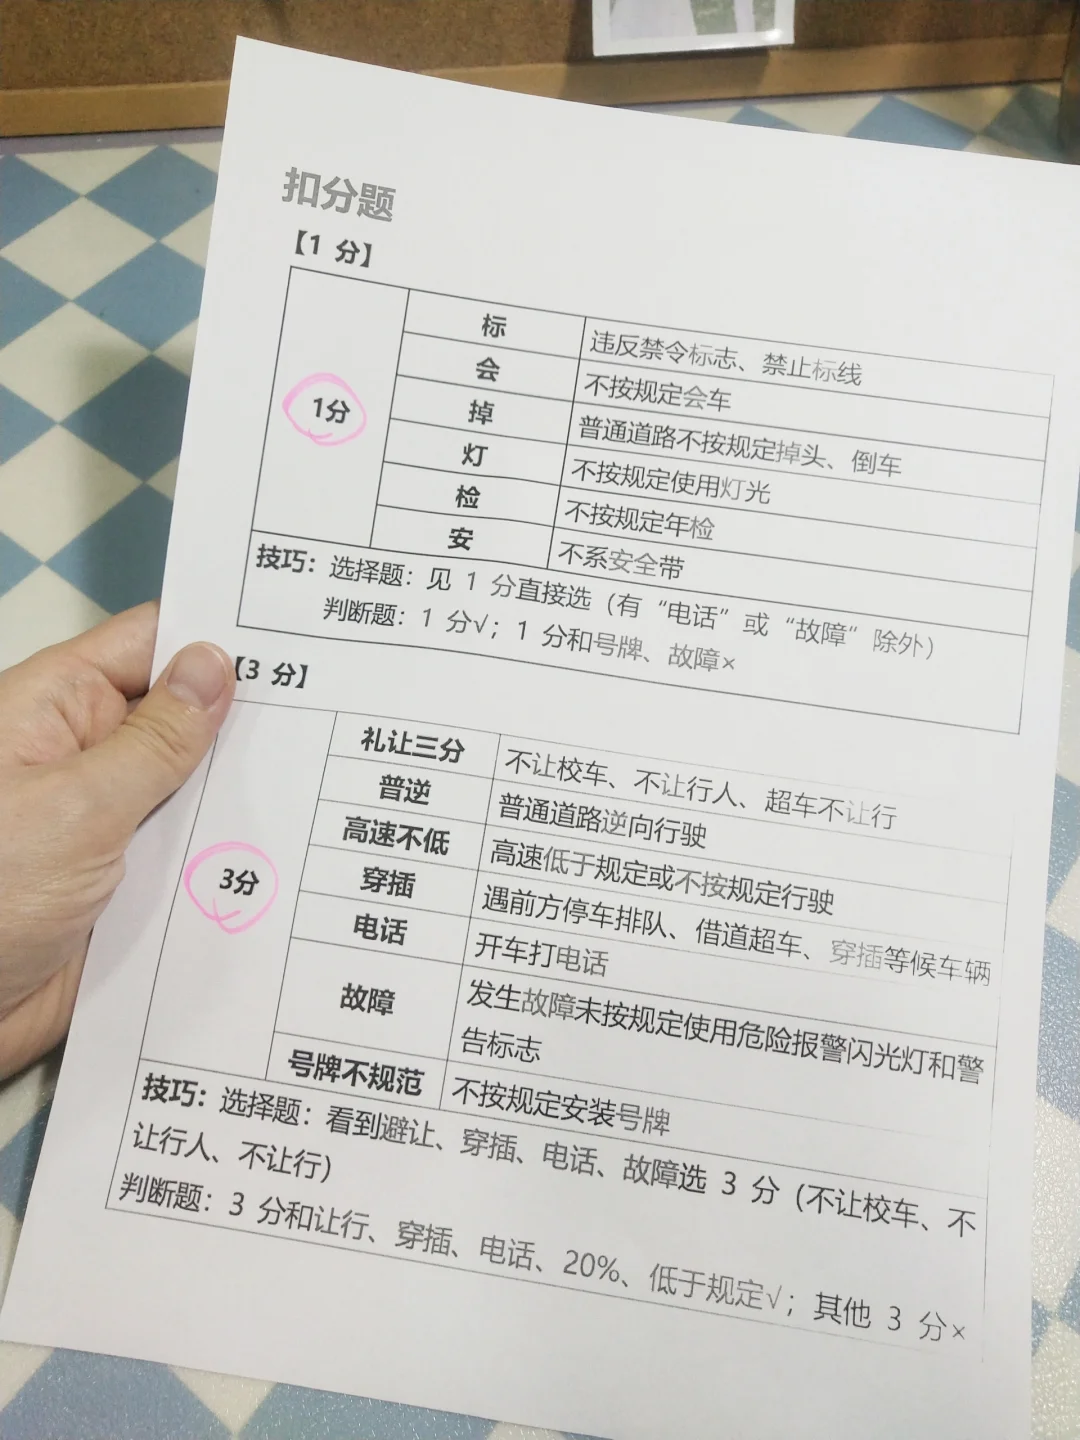 扣分题
【1 分】
1分
标 违反禁令标志、禁止标线
会 不按规定会车
掉 普通道路不按规定掉头、倒车
灯 不按规定使用灯光
检 不按规定年检
安 不系安全带
技巧：选择题：见 1 分直接选（有“电话”或“故障”除外）
判断题：1 分√；1 分和号牌、故障×
【3 分】
3分
礼让三分 不让校车、不让行人、超车不让行
普逆 普通道路逆向行驶
高速不低 高速低于规定或不按规定行驶
穿插 遇前方停车排队、借道超车、穿插等候车辆
电话 开车打电话
故障 发生故障未按规定使用危险报警闪光灯和警
告标志
号牌不规范 不按规定安装号牌
技巧：选择题：看到避让、穿插、电话、故障选 3 分（不让校车、不
让行人、不让行）
判断题：3 分和让行、穿插、电话、20%、低于规定√；其他 3 分×